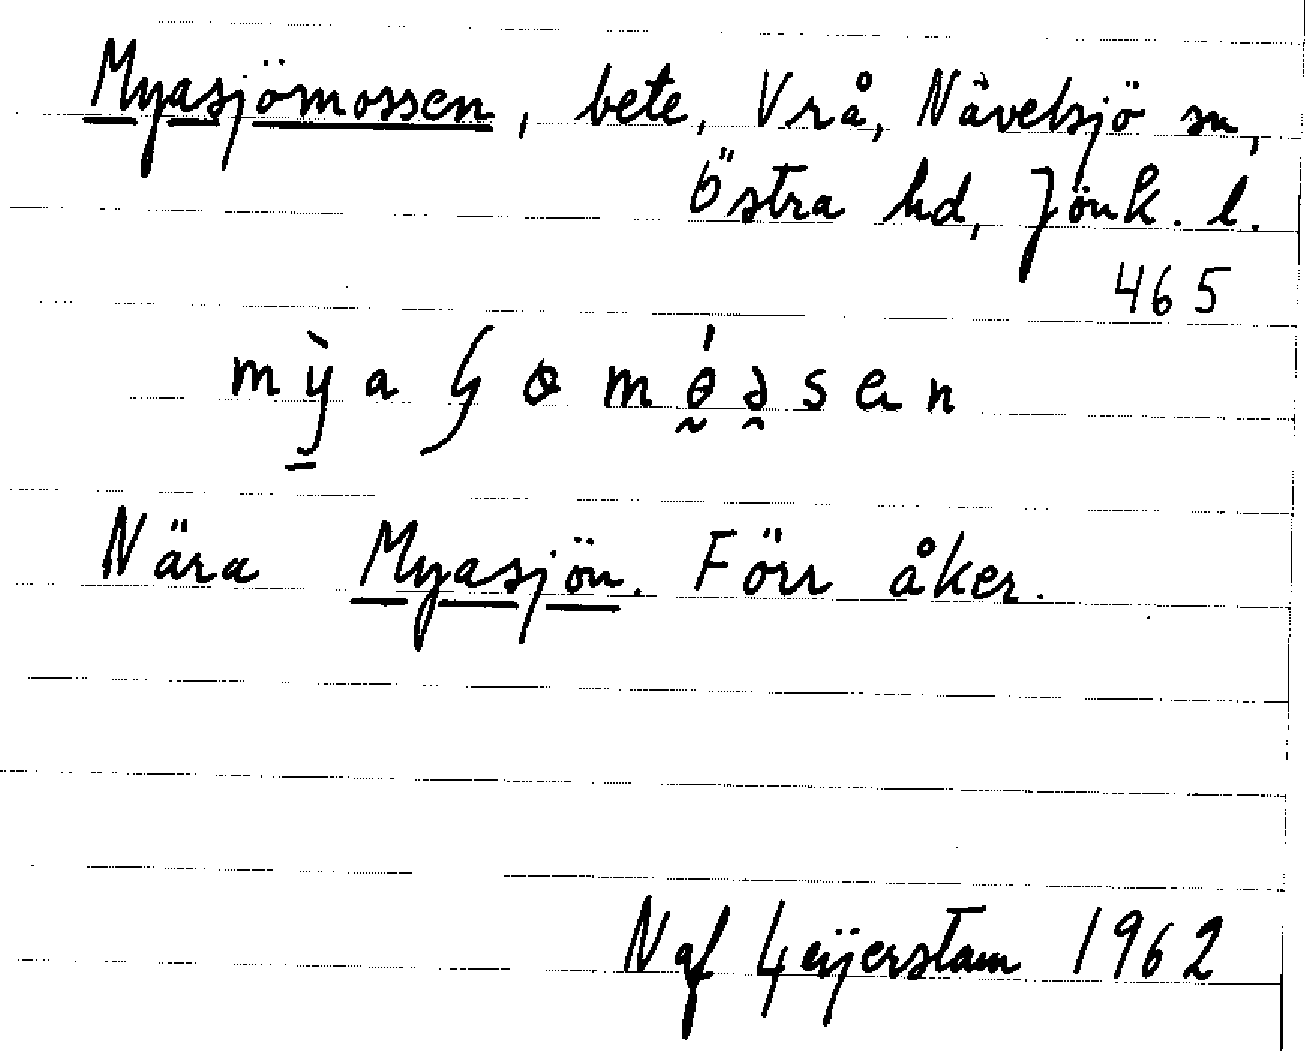 Myasjömossen, bete, Vrå, Nävelsjö sn,
Östra hd, Jönk. l.
465
Nära Myasjön. Förr åker.
N af Geijerstam 1962